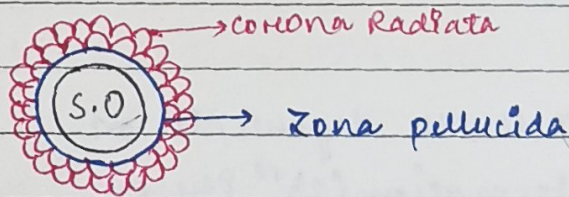 corona Radiata
S.O
Zona pellucida